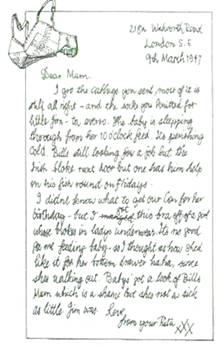 218a Walworth Road
London S.E
9th March 1947
Dear Mum.
I got the cabbage you sent most of it is
still all right - and the socks you knitted for
little Jim - Ta evens. The baby is sleeping
through from her 10 o'clock feed. Its perishing
cold. Bills still looking for a job but the
Irish bloke next door but one has him help
on his fish round on fridays.
I didnt know to get our Con for her
birthday - but I this bra off of a girl
whose blokes in ladys underwear. Its no good
for me feeding baby - so I thought as how shed
like it for her bottom drawer haha, since
shes walking out. Babys got a look of Bill's
Mam which is a shame but shes not as sick
as little Jim was. Love,
from your Reta
xxx